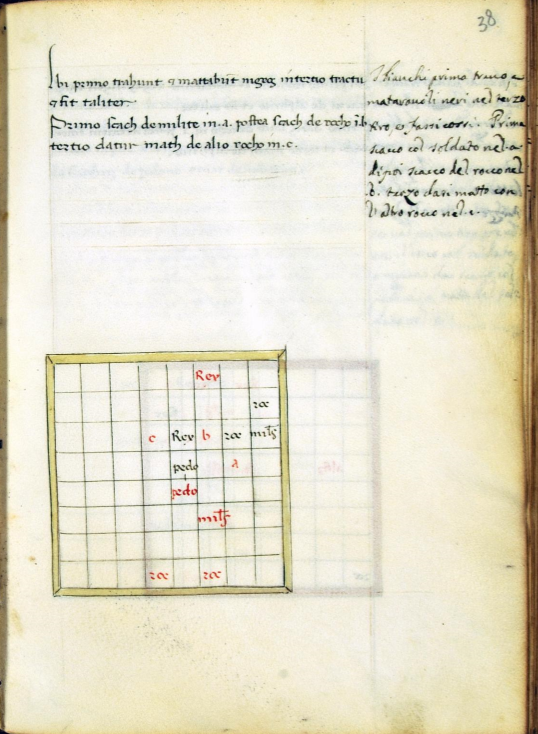 38
Ibi primo trahunt & mattabūt nigros in tertio tractu
& fit taliter
Primo scach de milite in .a. postea scach de rocho ī b
tertio datur math de alio rocho in .c.
I bianchi primo trano, e
matarano li neri nel terzo
tiro, e fassi cossi. Prima
scaco col soldato nel .a.
dipoi scaco del rocco nel
.b. terzo dan matto con
l altro rocco nel .c.
Rex
roc
c Rex b roc milˢ
pedo a
pedo
milˢ
roc roc